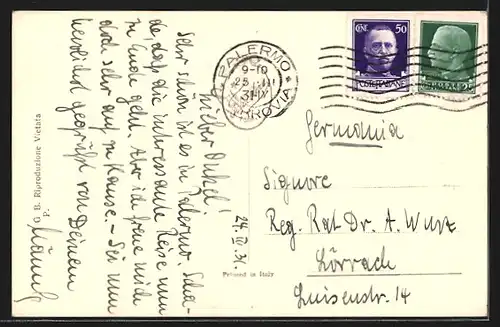 24. III 31.
Lieber Onkel!
Sehr schön ist es in Palermo. Scha-
de, dass die interessante Reise nun
zu Ende geht. Aber ich freue mich
doch sehr auf zu Hause. – Sei nun
herzlichst gegrüßt von Deinem
P. G. B. Riproduzione Vietata
Printed in Italy
PALERMO
9-10
FERROVIA
CENT. 50
POSTE ITALIANE
Germania
Signore
Reg. Rat Dr. A. Wurz
Lörrach
Luisenstr. 14